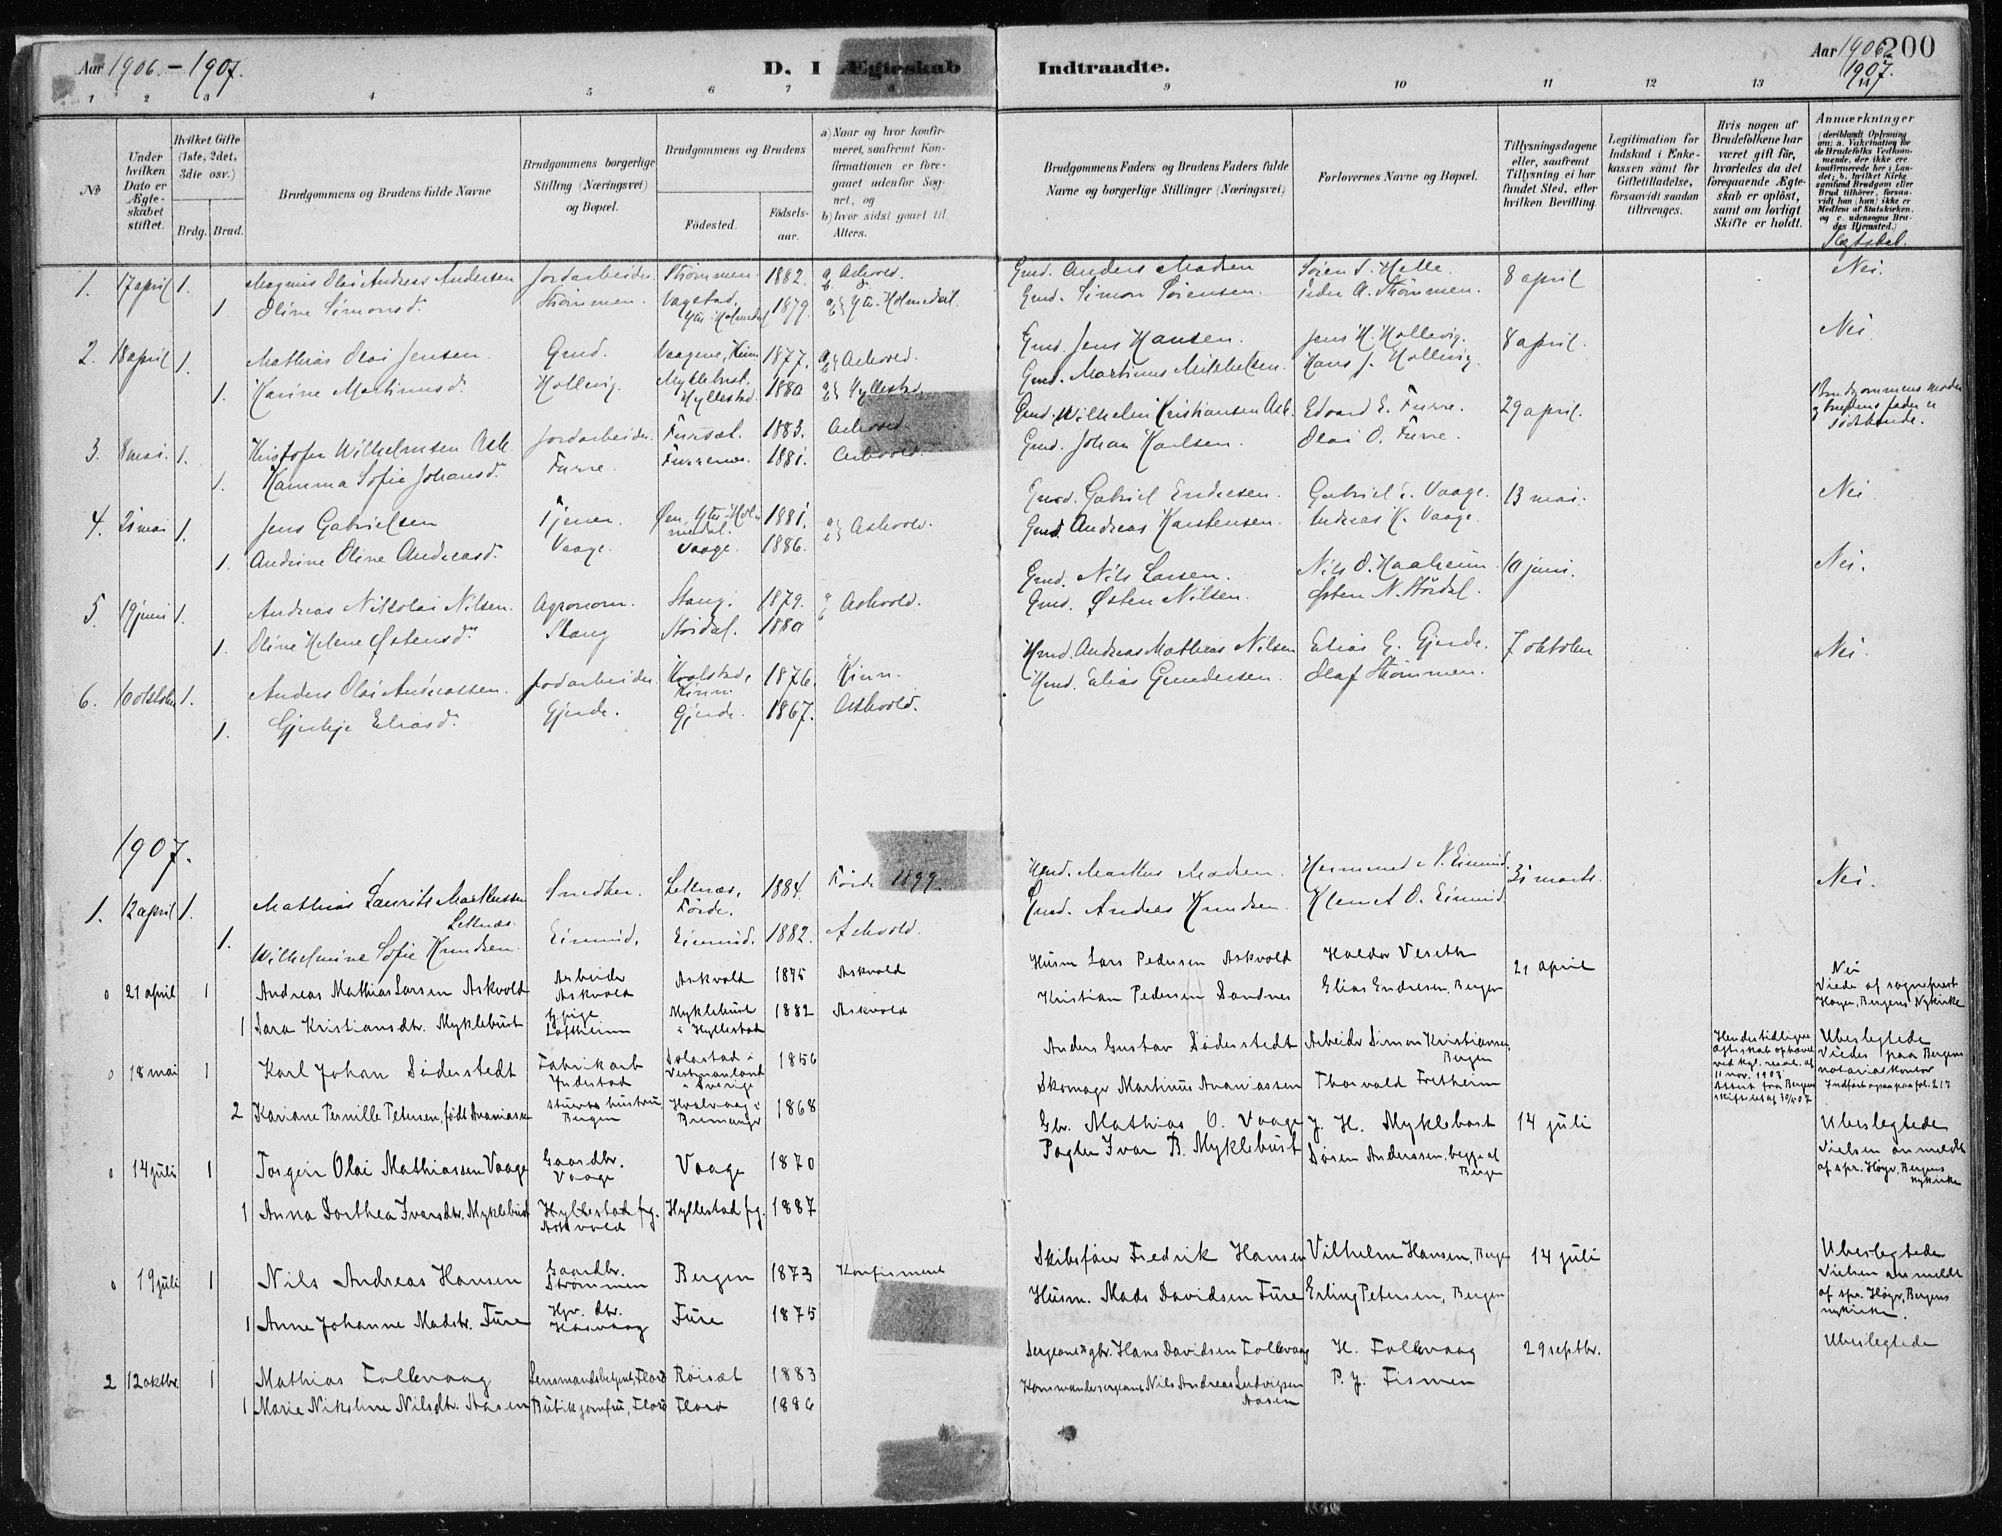 Aar 1906. - 1907.
D. I Ægteskab Indtraadte.
Aar 1906. 200
1907.
1 2 3 4 5 6 7 8 9 10 11 12 13
No
Under hvilken Dato er Ægteskabet stiftet.
Hvilket Gifte (1ste, 2det, 3die osv.)
Brdg. Brud.
Brudgommens og Brudens fulde Navne
Brudgommens borgerlige Stilling (Næringsvei) og Bopæl.
Brudgommens og Brudens
Fødested.
Fødselsaar.
a) Naar og hvor konfirmeret, saafremt Konfirmationen er foregaaet udenfor Sognet, og
b) hvor sidst gaaet til Alters.
Brudgommens Faders og Brudens Faders fulde Navne og borgerlige Stillinger (Næringsvei)
Forlovernes Navne og Bopæl.
Tillysningsdagene eller, saafremt Tillysning ei har fundet Sted, efter hvilken Bevilling.
Legitimation for Indskud i Enkekassen samt for Giftetilladelse, forsaavidt saadan tiltrænges.
Hvis nogen af Brudefolkene har været gift før, hvorledes da det foregaaende Ægteskab er opløst, samt om lovligt Skifte er holdt.
Anmærkninger
(deriblandt Oplysning om: a. Vakcination for de Brudefolks Vedkommende, der ikke ere konfirmerede her i Landet; b. hvilket Kirkesamfund Brudgom eller Brud tilhører, forsaavidt han (hun) ikke er Medlem af Statskirken, og c. udensogns Brudes Hjemsted.)
Slegtskab.
1. 17 april 1. Magnus Olai Andreas Andersen Jordarbeider Strømmen 1882. a Askvold. Gmd. Anders Madsen Søren S. Helle 8 april Nei.
1. Oline Simonsd. Strømmen. Vagstad, Ytre Holmedal 1879. Ytr. Holmedal Gmd. Simon Sørensen. Peder A. Strømmen.
2. 18 april 1. Mathias Olai Jensen. Gmd. Vaagene, Kinn 1877. Askvold. Gmd. Jens Hansen. Jens H. Hollevig. 8 april. Nei
1. Karine Martinusd. Hollevig. Myklebust. Hyllestad. 1880 Hyllestad. Gmd. Martinus Mikkelsen. Hans J. Hollevig.
3. 8 mai. 1. Kristofer Wilhelmsen Ask Jordarbeider. Furesæt. 1883. Askvold. Gmd. Wilhelm Kristiansen Ask. Edvard E. Furre. 29 april. Brudgommens moder og brudens fader er sødskende.
1. Hamma Sofie Johansd. Furre. Furrenes. 1881. Askvold. Gmd. Johan Karlsen. Olai O. Furre.
4. 21 mai 1. Jens Gabrielsen Tjener. Øen, Ytr. Holmedal. 1881. Askvold. Gmd. Gabriel Endresen. Gabriel E. Vaage. 13 mai. Nei
1. Andrine Oline Andreasd. Vaage. Vaage. 1886. Gmd. Andreas Karstensen. Andreas K. Vaage.
5. 19 juni 1. Andreas Nikolai Nilsen. Agronom. Stang. 1879. Askvold. Gmd. Nils Larsen. Nils O. Haaheim 10 juni. Nei.
1. Oline Helene Østensd. Stang Stordal. 1880 Gmd. Østen Nilsen. Østen N. Stordal.
6. 10 oktober 1. Anders Olai Andreassen. Jordarbeider. Kvalstad, Kinn. 1876. Kinn. Hmd. Andreas Mathias Nilsen Elias G. Gjerde. 7 oktober Nei.
1. Gjertje Eliasd. Gjerde. Gjerde. 1867. Askvold. Hmd. Elias Gundersen. Olaf Strømmen.
1907.
1. 12 april 1. Mathias Laurits Markussen Letnæs. Snedker. Letnæs, Førde. 1884. Førde 1899. Hmd. Markus Madsen. Hermund N. Eimind. 31 marts. Nei.
1. Wilhelmine Sofie Knudsen. Eimind. Eimind. 1882. Askvold. Gmd. Andreas Knudsen Klemet O. Eimind
0 21 april 1 Andreas Mathias Larsen Askvold Arbeider Askvold Askvold 1875 Askvold Husm Lars Pedersen Askvold Haldor Veseth 21 april Nei Viede af sogneprest Høyer, Bergens Nykirke
1 Sara Kristiansdtr. Myklebust Pige Loftheim Myklebust i Hyllestad 1882 Askvold Kristian Pedersen Sandnes Elias Endresen, Bergen
0 18 mai 1 Karl Johan Söderstedt Fabrikarb. Indestad Vestmanland i Sverige 1856 Anders Gustav Söderstedt Arbeider Simon Kristiansen, Bergen Hendes tidligere ægteskab ophævet ved kgl. resol. af 11 nov. 1903 Attest fra Bergens skifteret af 30/4 07 Ubeslegtede Viedes paa Bergens notarialkontor Indført ogsaa paa fol. 217
2 Kariane Pernille Petersen, født Ananiassen Stuerts hustru, Bergen Hvalvaag i Bremanger 1868 Skomager Martinus Ananiassen Thorvald Fretheim
0 14 juli 1 Torgeir Olai Mathiassen Vaage Gaardbr. Vaage Vaage 1870 Gbr. Mathias O. Vaage J. H. Myklebust 14 juli Ubeslegtede Vielsen anmeldt af spr. Høyer, Bergens nykirke
1 Anna Dorthea Iversdtr. Myklebust Hyllestad pg. Askvold Hyllestad pg. 1887 Pagter Ivar B. Myklebust Søren Anderssen, begge af Bergen
0 19 juli 1 Nils Andreas Hansen Gaardbr. Strømmen Bergen 1873 Konfirmeret Skibsfører Fredrik Hansen Vilhelm Hansen, Bergen 14 juli Ubeslegtede Vielsen anmeldt af spr. Høyer, Bergens nykirke.
1 Anne Johanne Madsdtr. Fure Fure 1875 Husm. Mads Davidsen Fure Erling Petersen, Bergen
2 12 oktbr. 1 Mathias Follevaag Lensmandsbetjent, Florø Røisæt 1883 Sergeant og gbr. Hans Davidsen Follevaag H. Follevaag 29 septbr. Ubeslegtede
1 Marie Nikoline Nilsdtr. Aasen Butikjomfru, Florø Florø 1886 Kommandersergeant Nils Andreas Ludvigsen Aasen P. J. Fismen